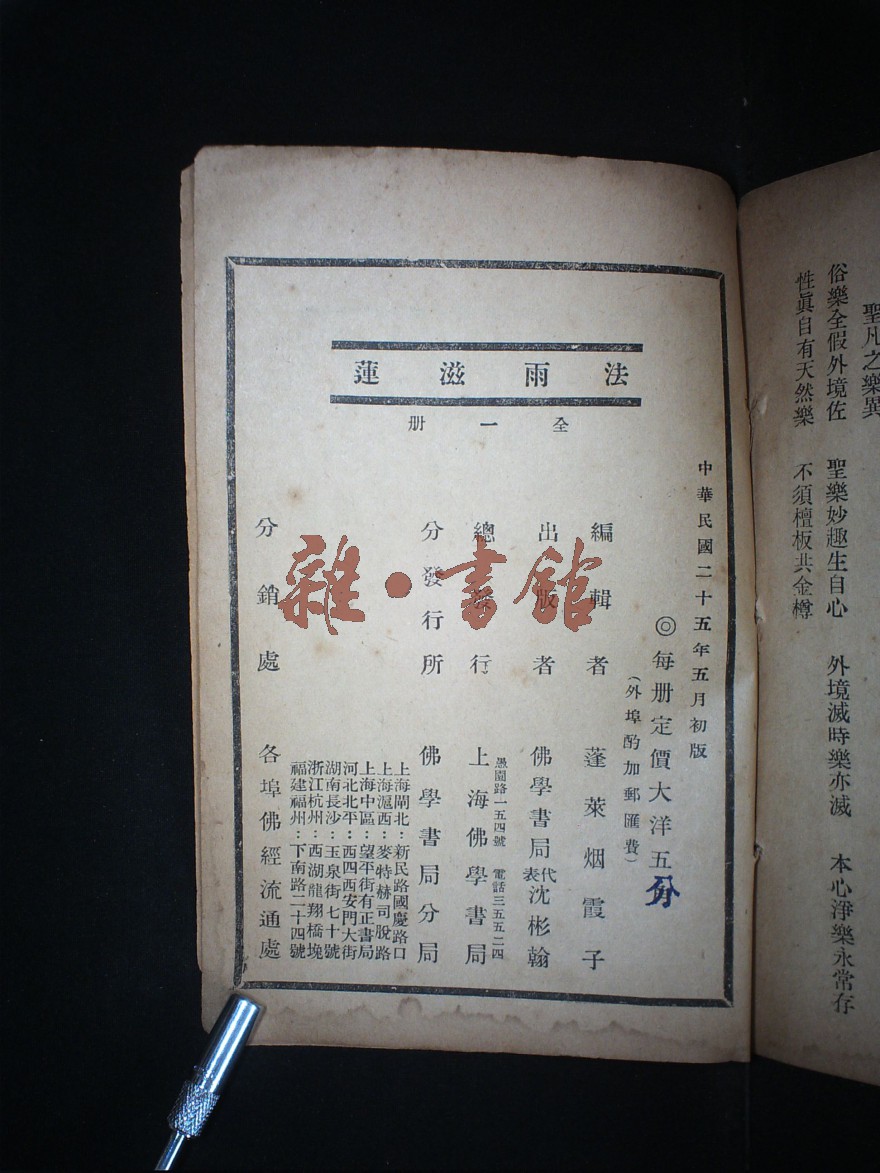 聖凡之樂異
俗樂全假外境佐　聖樂妙趣生自心　外境滅時樂亦滅　本心淨樂永常存
性眞自有天然樂　不須檀板共金樽
法雨滋蓮
全一册
中華民國二十五年五月初版
◎每册定價大洋五分
(外埠酌加郵匯費)
編輯者　蓬萊烟霞子
出版者　佛學書局代表沈彬翰
總發行　上海佛學書局
愚園路一五四號　電話三五五二四
分發行所　佛學書局分局
上海閘北：新民路國慶路口
上海滬西：麥特赫司脫路
上海中區：望平街有正書局
河北北平：西四西安門大街
湖南長沙：玉泉街七十號
浙江杭州：西湖龍翔橋堍
福建福州：下南路二十四號
分銷處　各埠佛經流通處
雜·書館